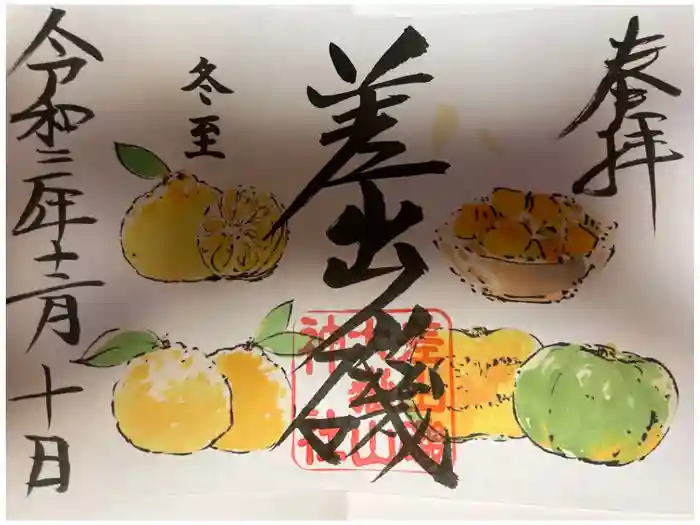 奉拝
差出磯
冬至
令和三年十二月十日
差出磯
大嶽山
神社